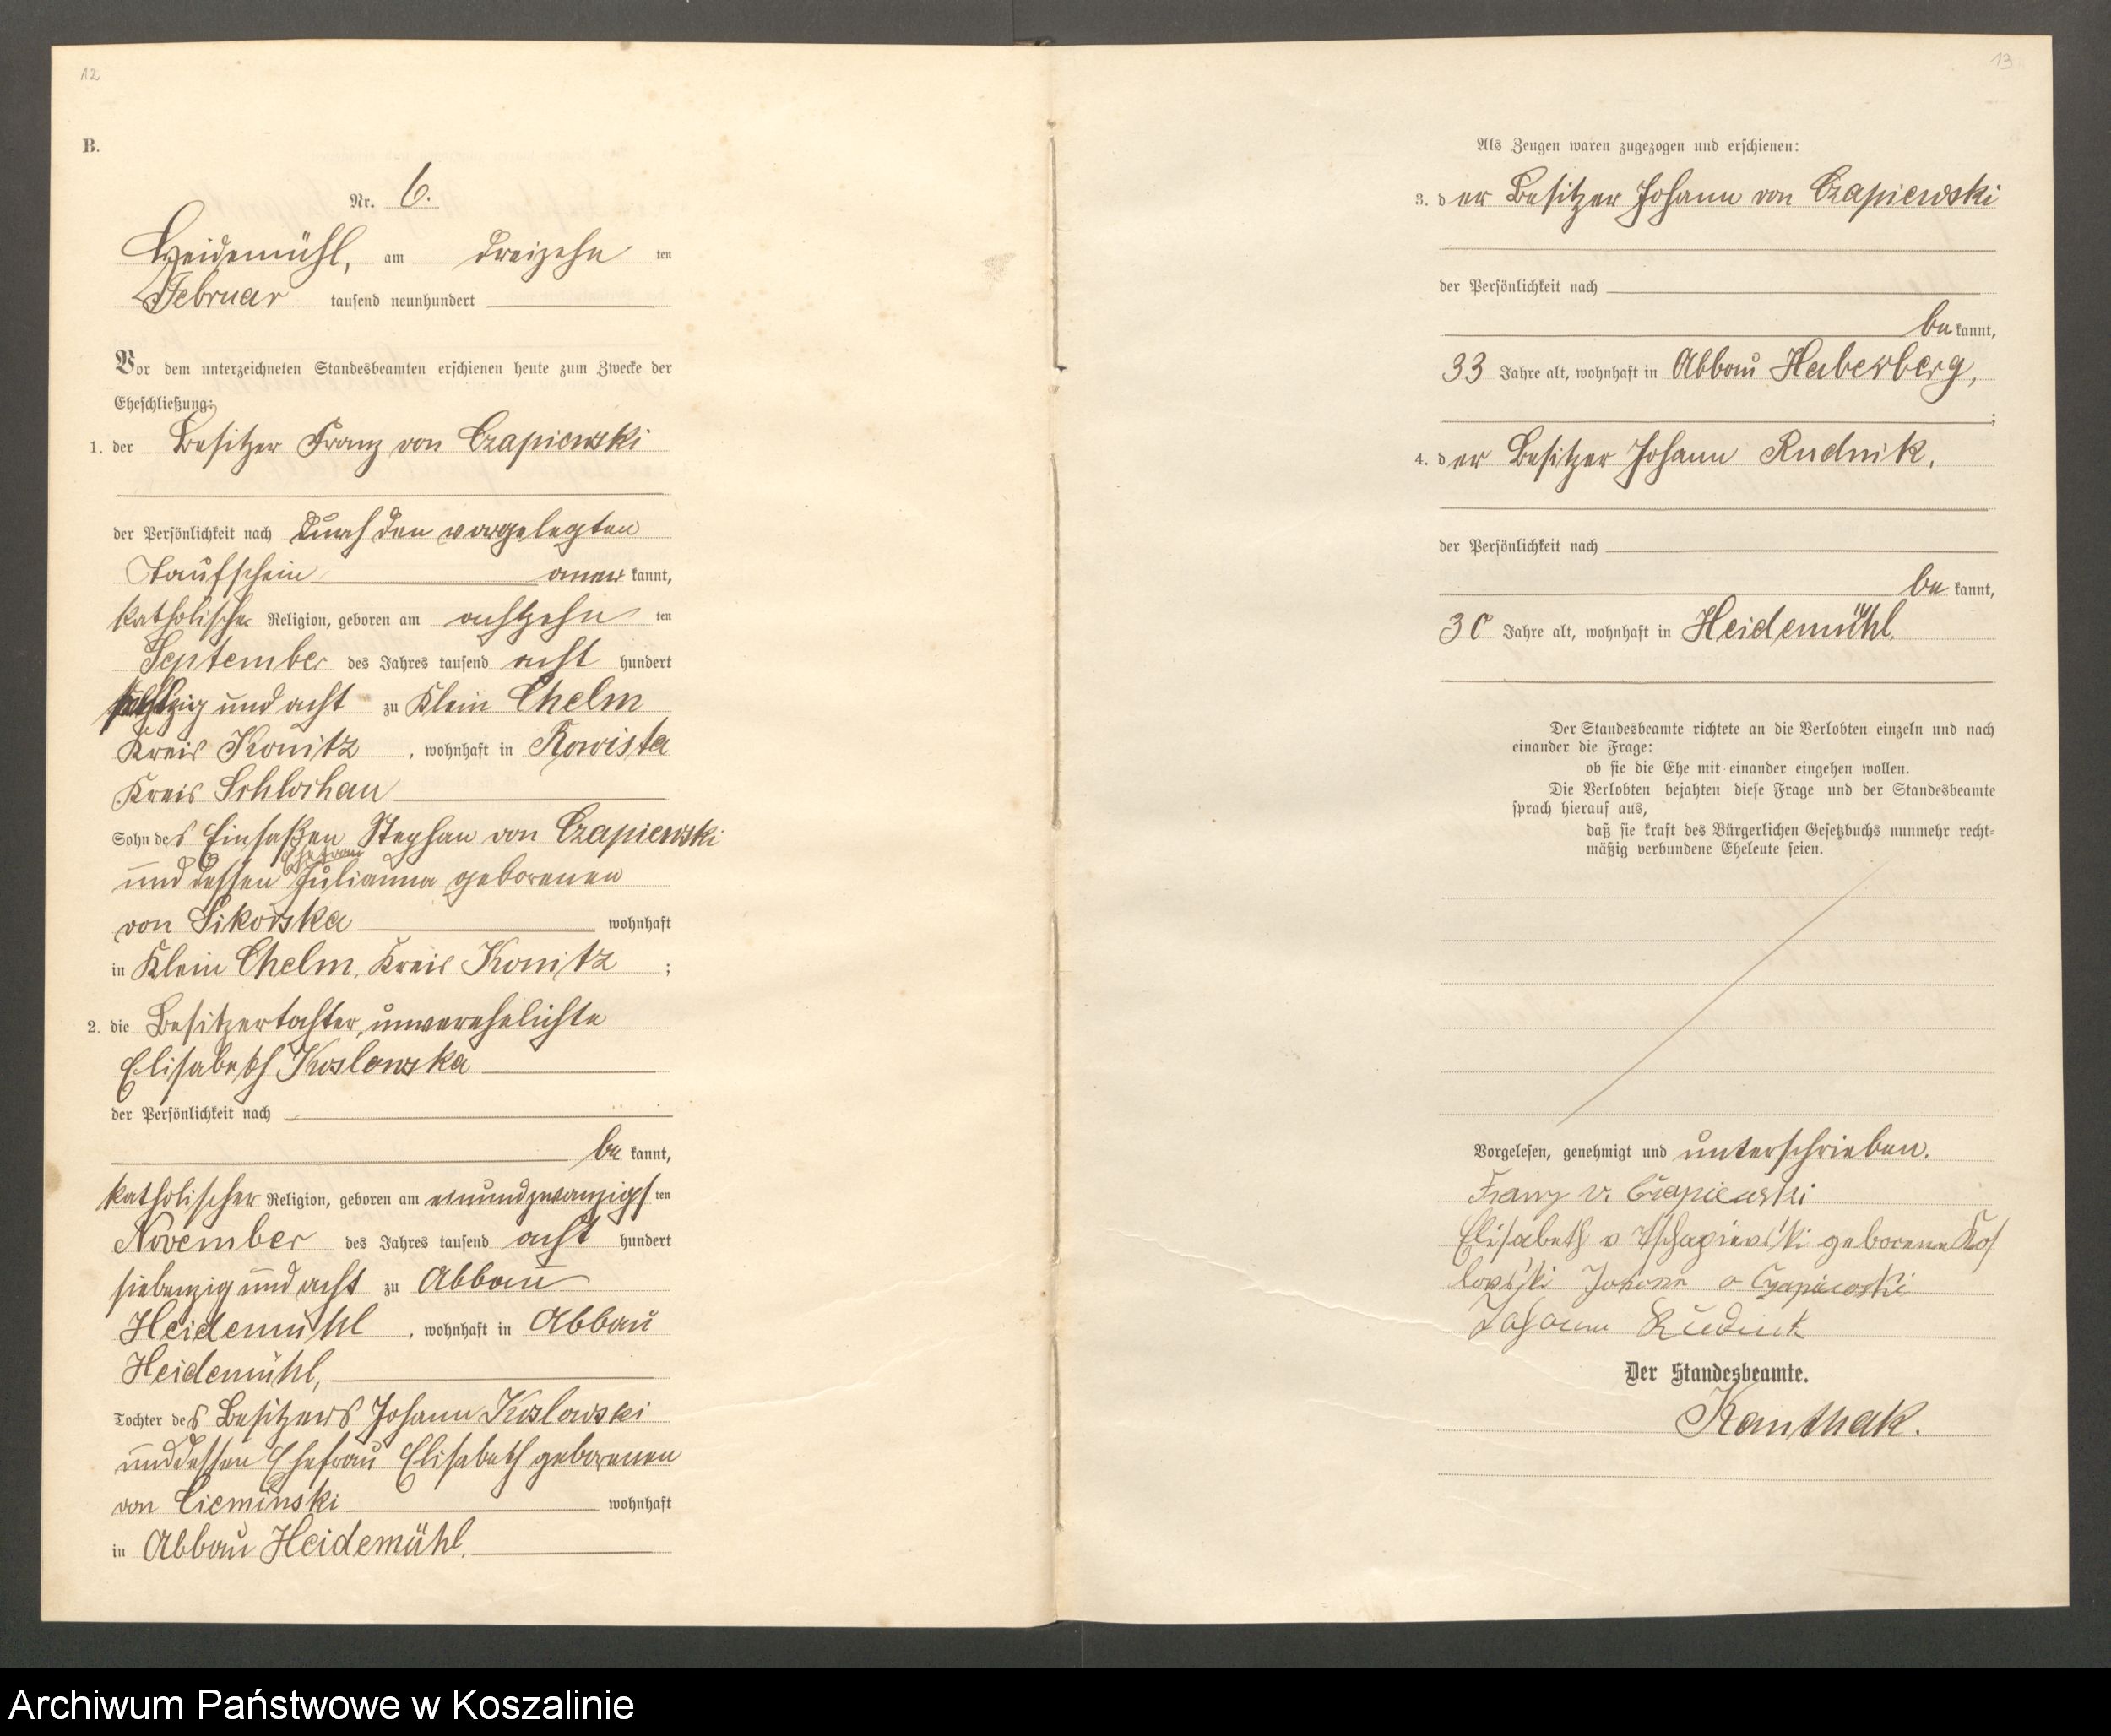 12
B.
Nr. 6.
Heidemühl, am dreizehn ten
Februar tausend neunhundert
Vor dem unterzeichneten Standesbeamten erschienen heute zum Zwecke der
Eheschließung:
1. der Besitzer Franz von Czapiewski
der Persönlichkeit nach durch den vorgelegten
Taufschein aner kannt,
katholischer Religion, geboren am achtzehn ten
September des Jahres tausend acht hundert
und acht zu Klein Chelm
Kreis Konitz, wohnhaft in
Kreis Schlochau
Sohn des Einsaßen Stephan von Czapiewski
und dessen Ehefrau Julianna geborenen
von Sikorska wohnhaft
in Klein Chelm, Kreis Konitz ;
2. die Besitzertochter, unverehelichte
Elisabeth Koslowska
der Persönlichkeit nach
be kannt,
katholischer Religion, geboren am einundzwanzigs ten
November des Jahres tausend acht hundert
siebenzig und acht zu Abbau
Heidemühl, wohnhaft in Abbau
Heidemühl,
Tochter des Besitzers Johann Koslowski
und dessen Ehefrau Elisabeth geborenen
von Cieminski wohnhaft
in Abbau Heidemühl.
13
Als Zeugen waren zugezogen und erschienen:
3. der Besitzer Johann von Czapiewski
der Persönlichkeit nach
be kannt,
33 Jahre alt, wohnhaft in Abbau Haberberg,
;
4. der Besitzer Johann Rudnik,
der Persönlichkeit nach
be kannt,
30 Jahre alt, wohnhaft in Heidemühl.
Der Standesbeamte richtete an die Verlobten einzeln und nach
einander die Frage:
ob sie die Ehe mit einander eingehen wollen.
Die Verlobten bejahten diese Frage und der Standesbeamte
sprach hierauf aus,
daß sie kraft des Bürgerlichen Gesetzbuchs nunmehr recht-
mäßig verbundene Eheleute seien.
Vorgelesen, genehmigt und unterschrieben.
Franz v. Czapiewski
Elisabeth v Tschapiewski geborene Kos
lowski Johann v Czapiewski
Johann Rudnik
Der Standesbeamte.
Kanthak.
Archiwum Państwowe w Koszalinie